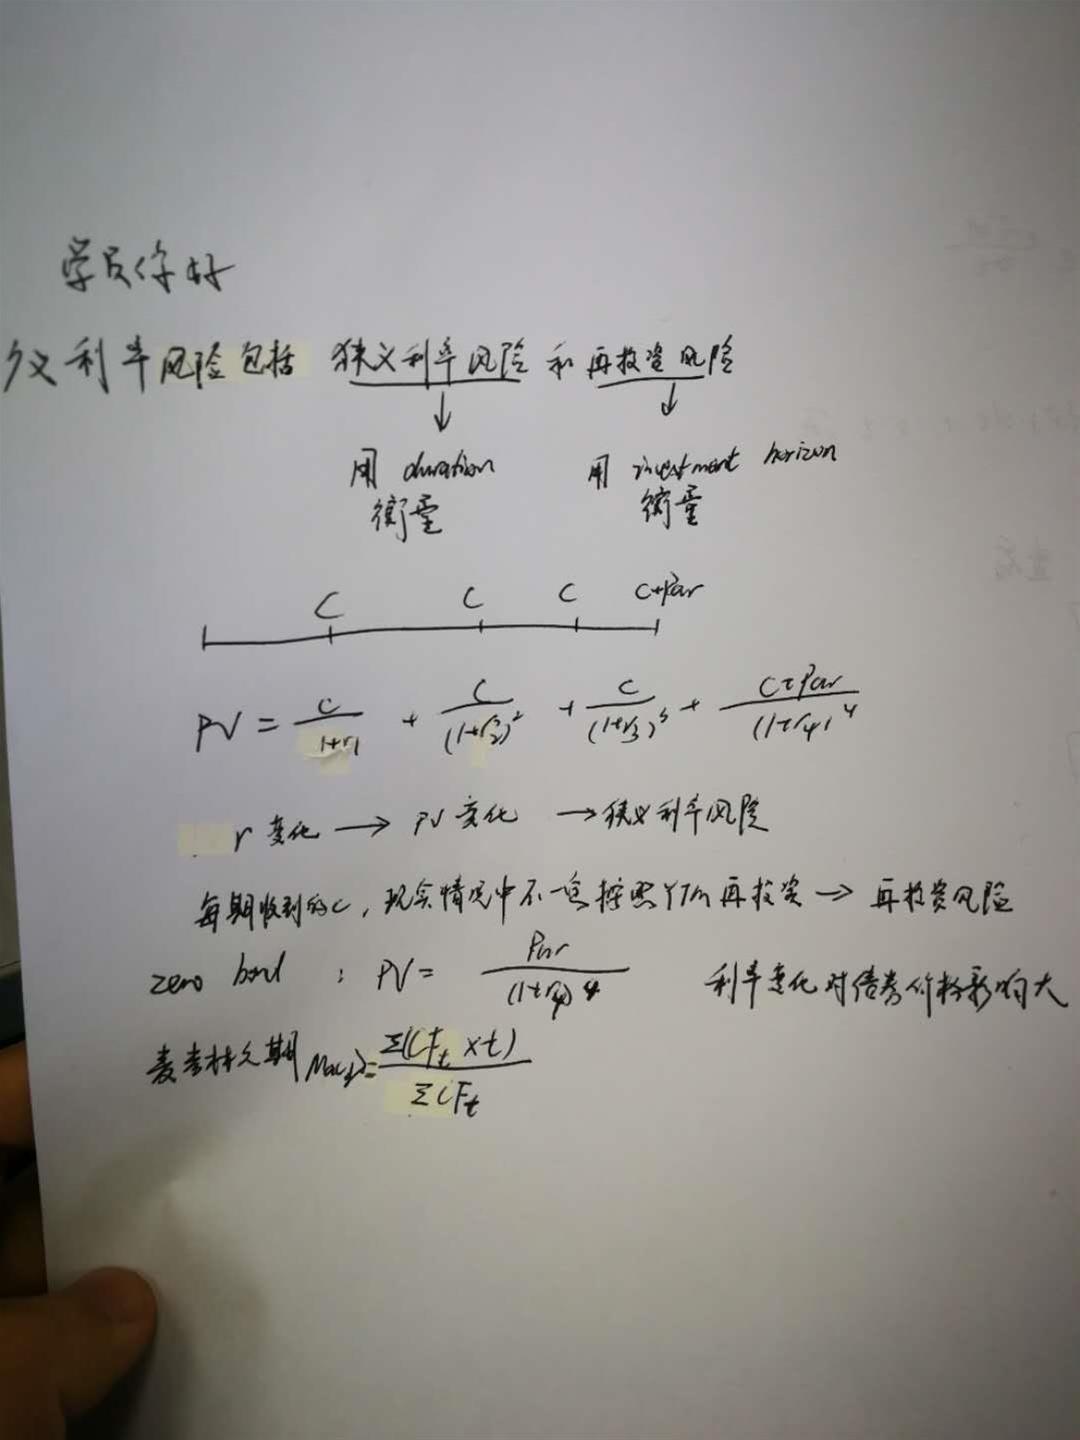 学员你好
广义利率风险包括 狭义利率风险 和 再投资风险
↓ ↓
用 duration 用 investment horizon
衡量 衡量
C C C C+Par
PV = C/(1+r1) + C/(1+r2)^2 + C/(1+r3)^3 + C+Par/(1+r4)^4
r 变化 → PV 变化 → 狭义利率风险
每期收到的C，现实情况中不一定按照YTM再投资 → 再投资风险
zero bond : PV = Par/(1+r4)^4 利率变化对债券价格影响大
麦考林久期 MacD = Σ(CFt × t)/ΣCFt